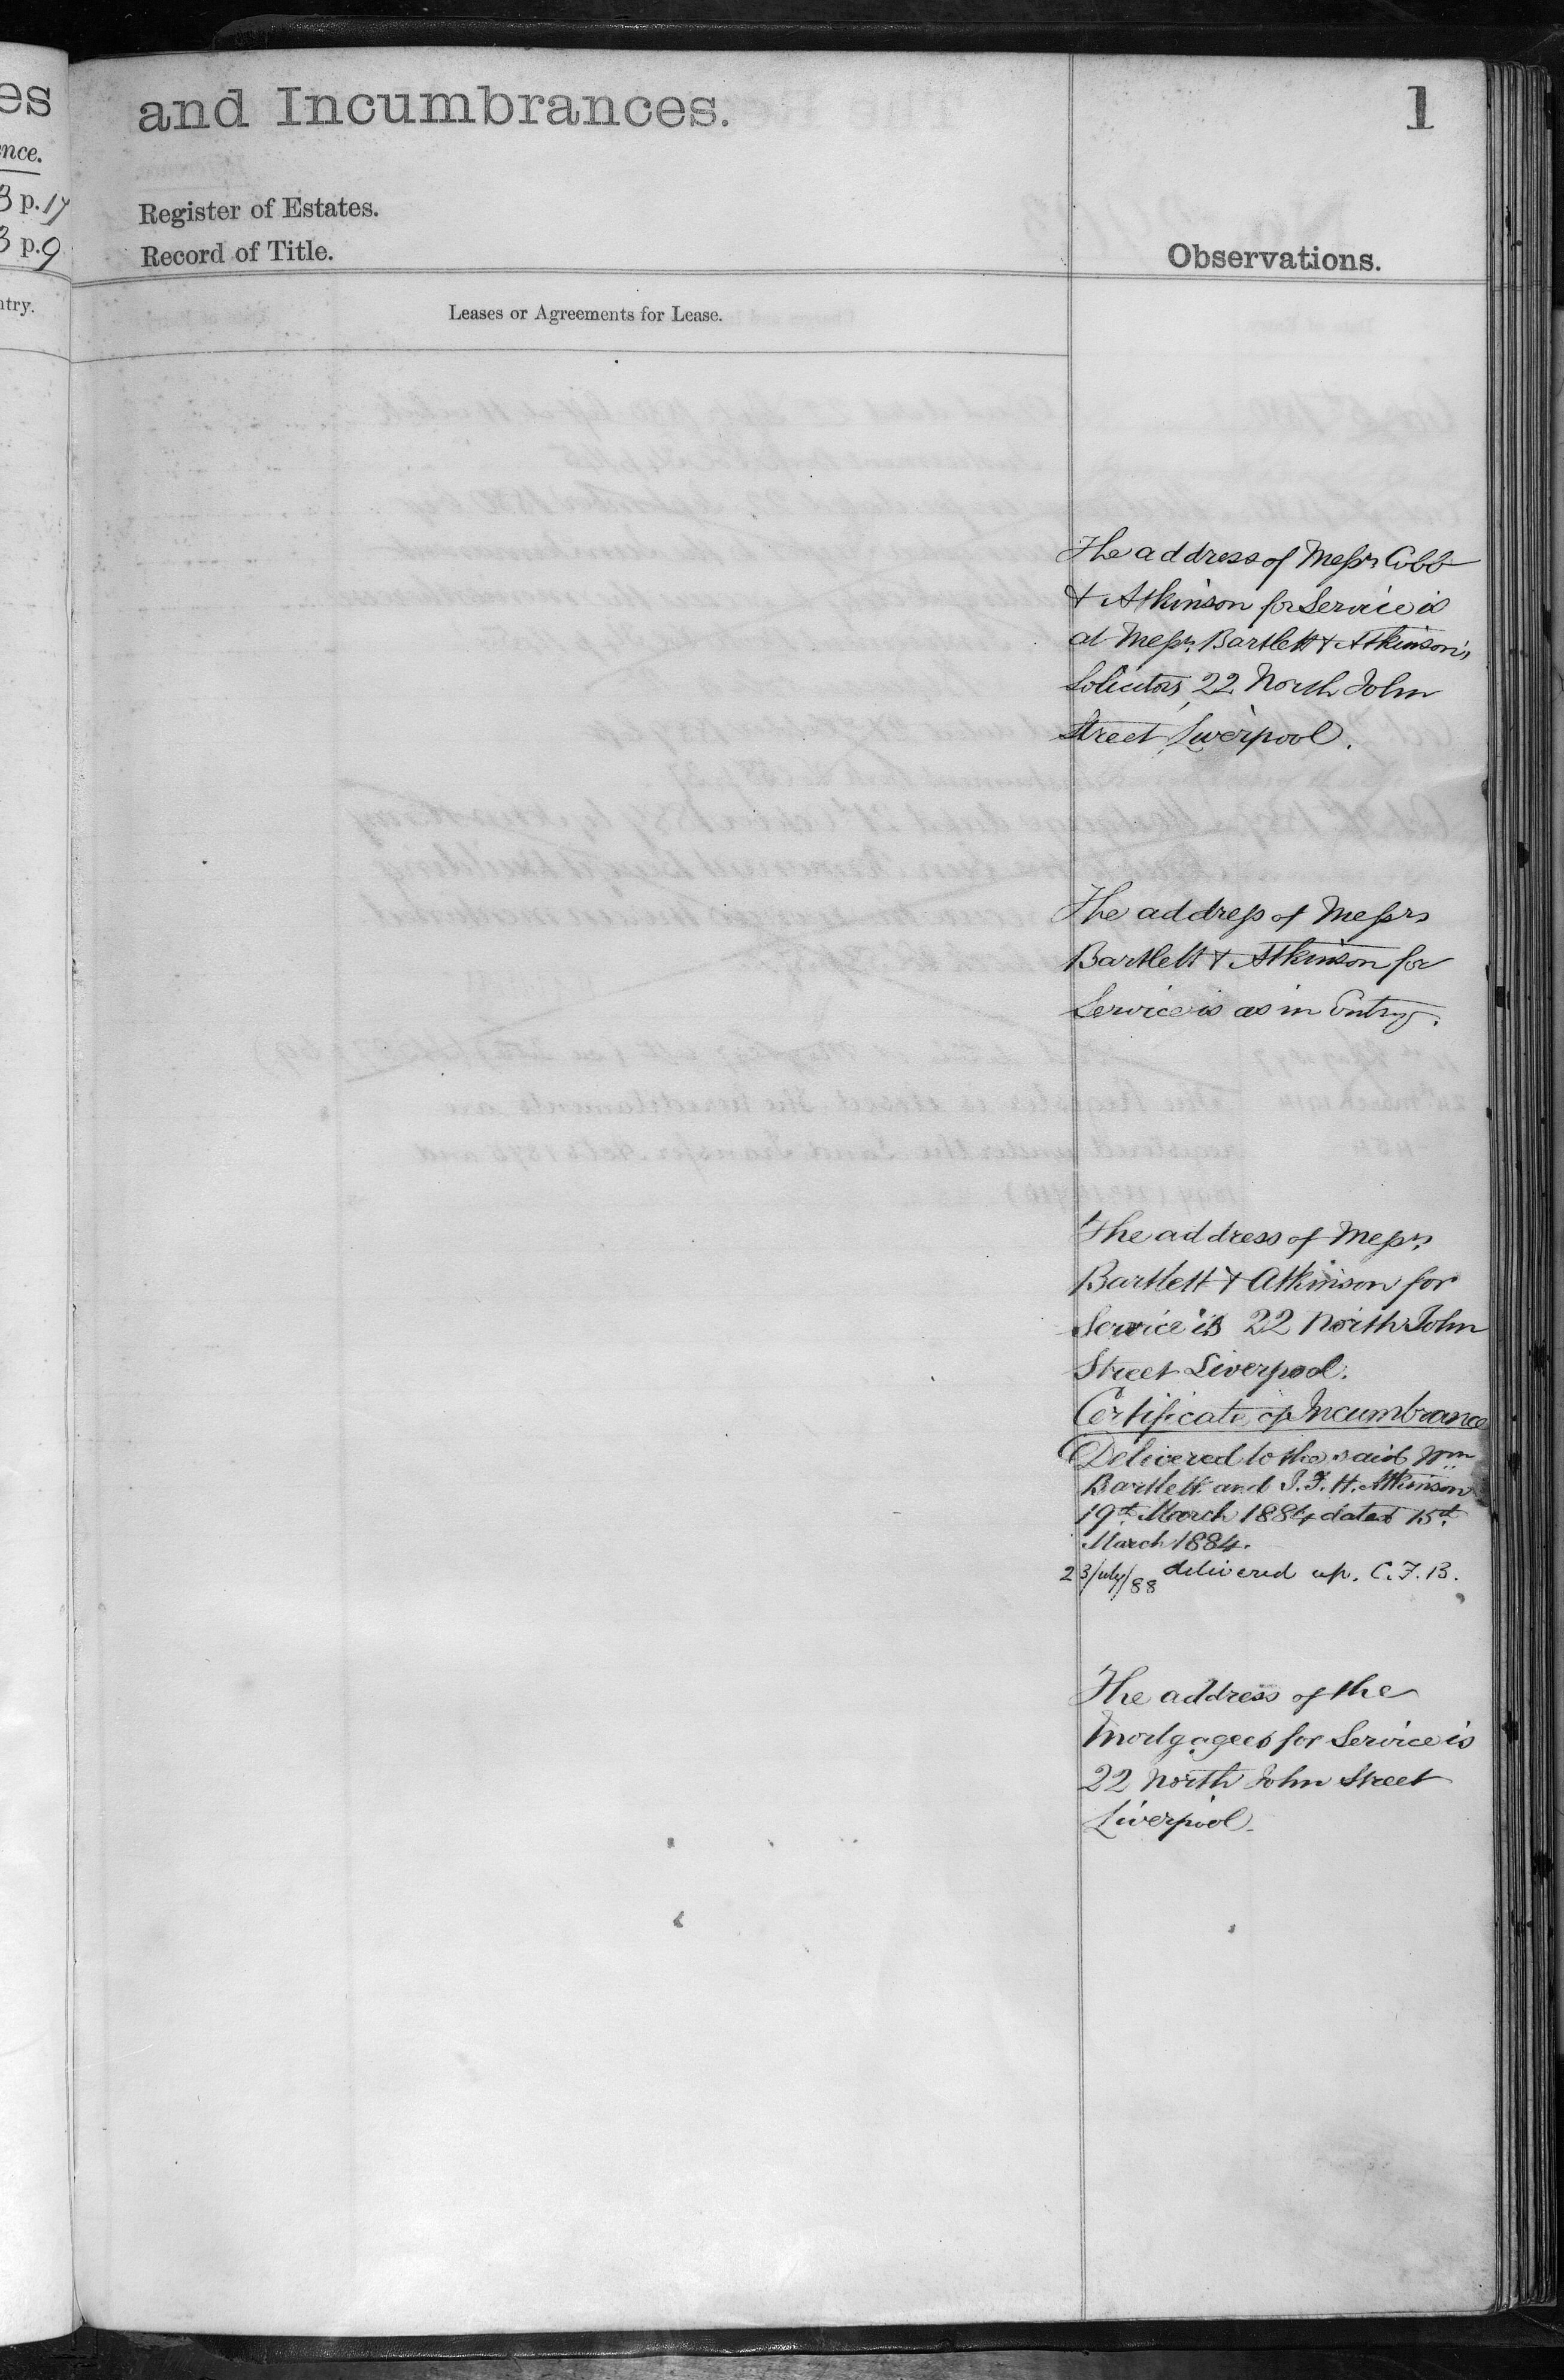 es
nce.
3 p. 17
3 p. 9
ntry.
and Incumbrances.
1
Register of Estates.
Record of Title.
Observations.
Leases or Agreements for Lease.
The address of Messrs Cobb
& Atkinson for Service is
at Messrs Bartlett & Atkinson's
Solicitors, 22 North John
Street, Liverpool.
The address of Messrs
Bartlett & Atkinson for
Service is as in Entry.
The address of Messrs
Bartlett & Atkinson for
Service is 22 North John
Street Liverpool.
Certificate of Incumbrance
Delivered to the said Wm
Bartlett and J. F. H. Atkinson
19th March 1884 dated 15th
March 1884.
23/July/88 delivered up. C. F. B.
The address of the
Mortgagees for Service is
22 North John Street
Liverpool.